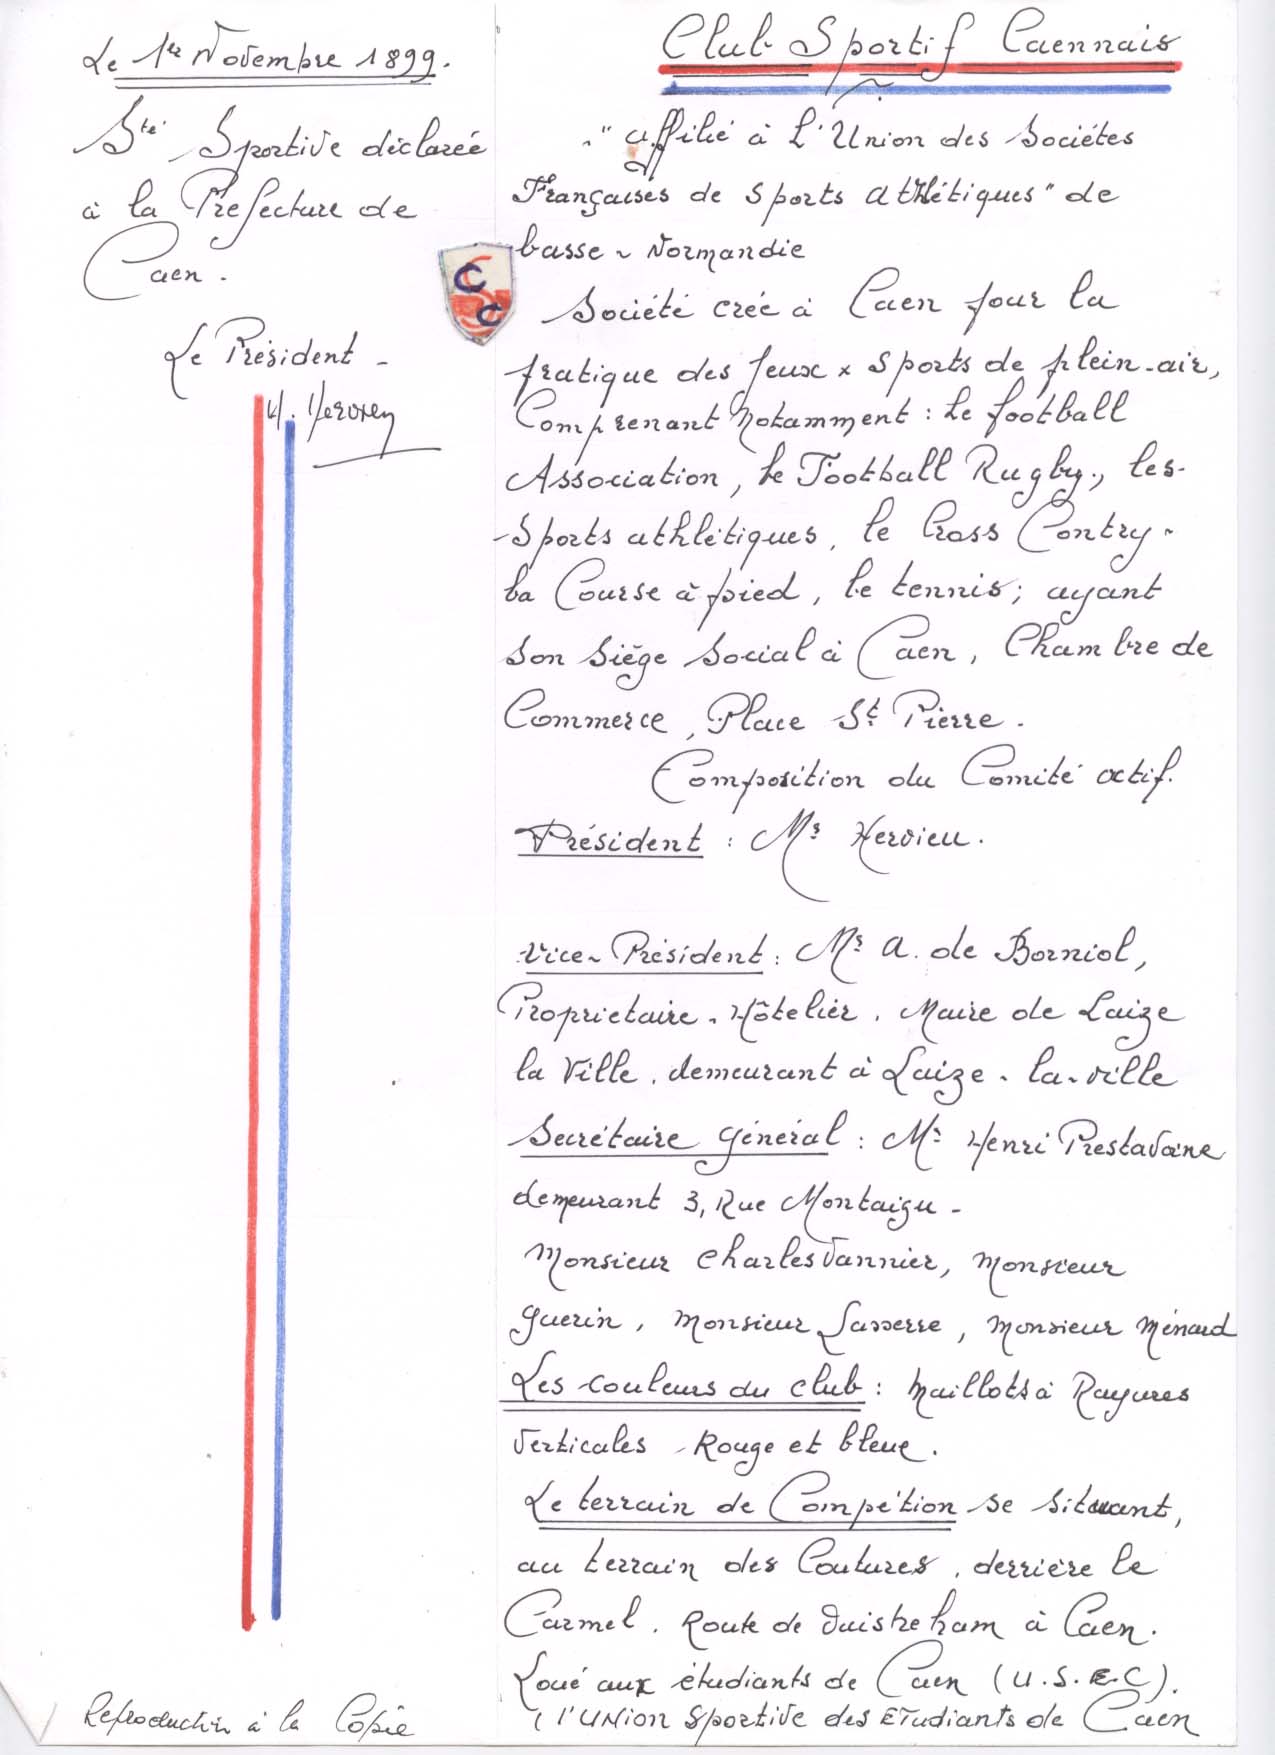 Le 1er Novembre 1899.
Sté Sportive déclarée
à la Prefecture de
Caen.
Le Président -
C
S
C
Reproduction à la Copie
Club Sportif Caennais
"affilié à L'Union des Sociétes
Françaises de Sports athlétiques" de
basse-Normandie
Société crée à Caen pour la
pratique des Jeux x Sports de plein-air,
Comprenant Notamment : Le football
Association, le Football Rugby, les-
-Sports athlétiques, le Cross Contry-
la Course à pied, le tennis; ayant
Son Siège Social à Caen, Chambre de
Commerce, Place St Pierre.
Composition du Comité actif.
Président : Mr Hervieu.
Vice-Président : Mr A. de Borniol,
Proprietaire-Hôtelier. Maire de Laize
la Ville. demeurant à Laize-la-ville
Secrétaire général : Mr Henri Prestavoine
demeurant 3, Rue Montaigu -
Monsieur Charles Vannier, Monsieur
Guerin, Monsieur Lasserre, Monsieur Ménard
Les couleurs du club : Maillots à Rayures
Verticales - Rouge et bleue.
Le terrain de Compé'tion se situant,
au terrain des Coutures, derrière le
Carmel. Route de Ouistreham à Caen.
Loué aux étudiants de Caen (U.S.E.C).
(l'UNion Sportive des ETudiants de Caen